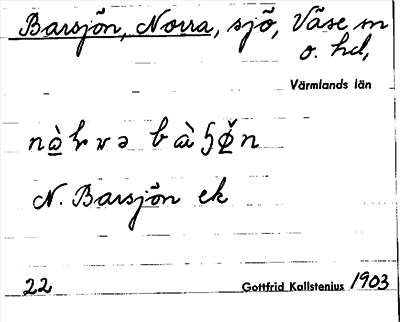 Barsjön, Norra, sjö, Väse sn
o. hd,
Värmlands län
N. Barsjön ek
22
Gottfrid Kallstenius 1903